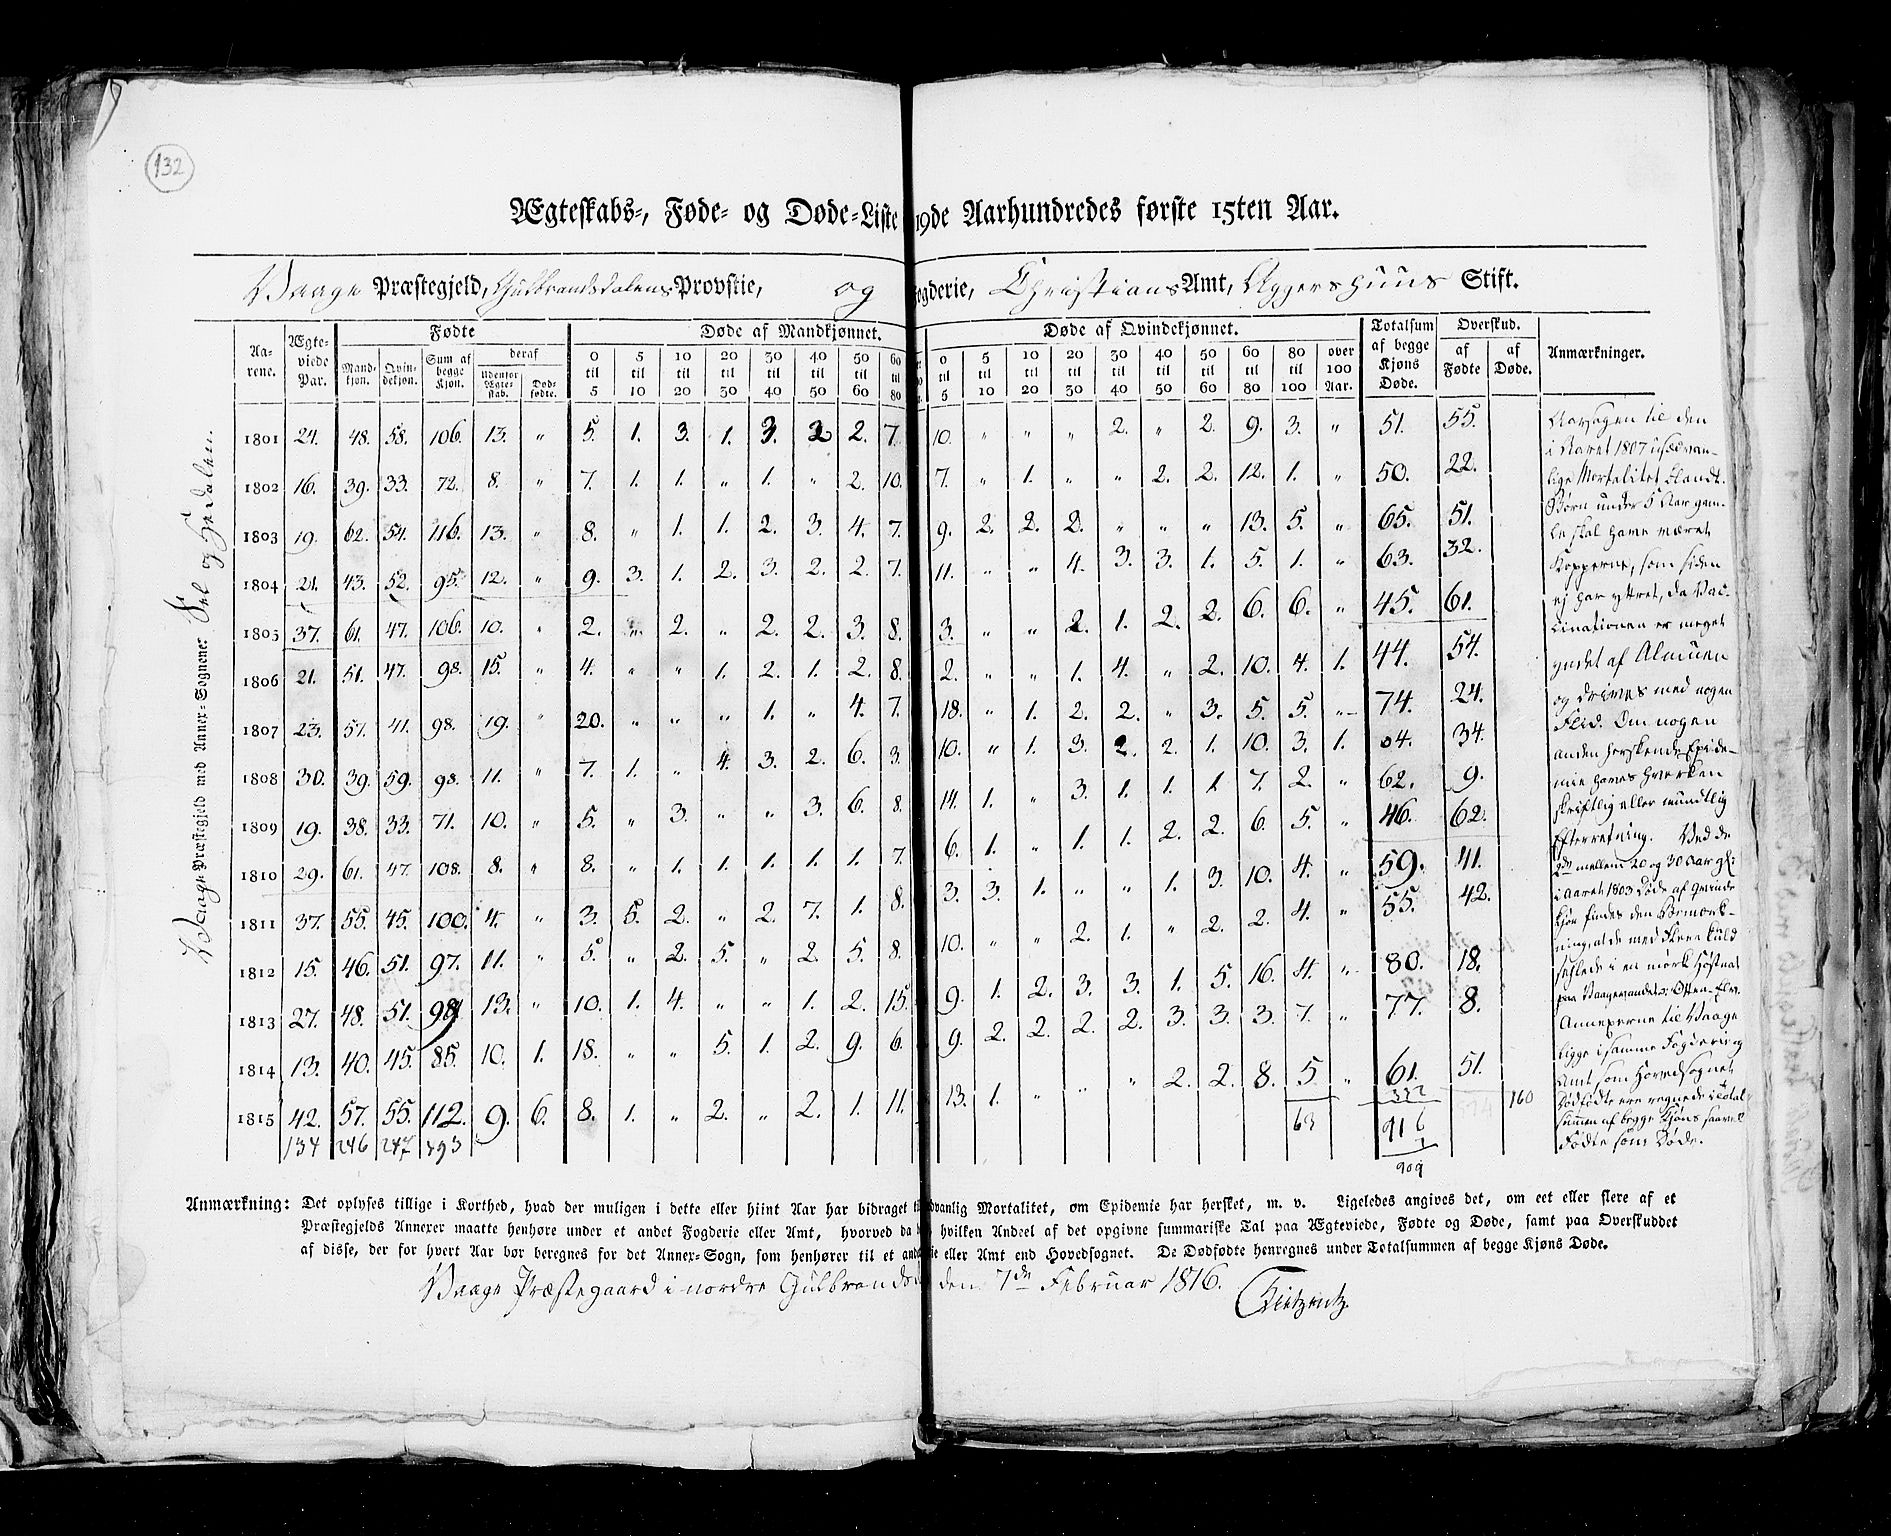 132
Ægteskabs-, Føde- og Døde-Liste 19de Aarhundredes første 15ten Aar.
Vaage Præstegjeld, Gulbrandsdalens Provstie, og Fogderie, Christians Amt, Aggershuus Stift.
Vaage Præstegjeld med Annex-Sognene: Sel og Hedalen.
Aarene. Ægteviede Par. Fødte Døde af Mandkjønnet. Døde af Qvindekjønnet. Totalsum af begge Kjøns Døde. Overskud. Anmærkninger.
Mandkjøn. Qvindekjøn. Sum af begge Kjøn. deraf udenfor Ægtestab. Dødfødte. 0 til 5 5 til 10 10 til 20 20 til 30 30 til 40 40 til 50 50 til 60 60 til 80 0 til 5 5 til 10 10 til 20 20 til 30 30 til 40 40 til 50 50 til 60 60 til 80 80 til 100 over 100 Aar. af Fødte af Døde.
1801 24. 48. 58. 106. 13. " 5. 1. 3. 1. 3. 2. 7. 10. " " " 2. " 2. 9. 3. " 51. 55.
1802 16. 39. 33. 72. 8. " 7. 1. 1. " 1. " 2. 10. 7. " 1. " " 2. 2. 12. 1. " 50. 22.
1803 19. 62. 54. 116. 13. " 8. " 1. 1. 2. 3. 4. 7. 9. 2. 2. 2. " " " 13. 5. " 65. 51.
1804 21. 43. 52. 95. 12. " 9. 3. 1. 2. 3. 2. 2. 7. 11. " " 4. 3. 3. 1. 5. 1. " 63. 32.
1805 37. 61. 47. 106. 10. " 2. " 2. " 2. 2. 3. 8. 3. " " 2. 1. 2. 2. 6. 6. " 45. 61.
1806 21. 51. 47. 98. 15. " 4. " " 1. 2. 1. 2. 8. 2. " " 1. 4. " 2. 10. 4. 1. 44. 54.
1807 23. 57. 41. 98. 19. " 20. " " " 1. " 4. 7. 18. " 1. 2. 2. " 3. 5. 5. " 74. 24.
1808 30. 39. 59. 98. 11. " 7. 1. " 4. 3. 2. 6. 3. 10. " 1. 3. 2. 2. 1. 10. 3. 1. 64. 34.
1809 19. 38. 33. 71. 10. " 5. " 3. " " 3. 6. 8. 14. 1. " 3. 1. 1. 1. 7. 2. " 62. 9.
1810 29. 61. 47. 108. 8. " 8. " 1. 1. 1. 1. 1. 7. 6. 1. " 1. 1. 2. 2. 6. 5. " 46. 62.
1811 37. 55. 45. 100. 4. " 3. 5. 2. " 2. 7. 1. 8. 3. 3. 1. " " 1. 3. 10. 4. " 59. 41.
1812 15. 46. 51. 97. 11. " 5. " 2. 5. " 2. 5. 8. 10. " " 2. 1. " 2. 2. 4. " 55. 42.
1813 27. 48. 51. 98. 13. " 10. 1. 4. " " 1. 2. 15. 9. 1. 2. 3. 3. 1. 5. 16. 4. " 80. 18.
1814 13. 40. 45. 85. 10. 1. 18. " " 5. 1. 2. 9. 6. 9. 2. 2. 2. 2. 3. 3. 3. 7. " 77. 8.
1815 42. 57. 55. 112. 9. 6. 8. 1. " 2. " 2. 1. 11. 13. 1. " " " 2. 2. 8. 5 " 61. 51.
134 246 247 493 63 332 916 909 160
Aarsagen til den
i Aaret 1807 usædvan-
lige Mortalitet blandt
Børn under 5 Aar gam-
le skal have været
Kopperne, som siden
ej har yttret, da Vac-
cinationen er meget
yndet af Almuen
og drives med nogen
Flid. Om nogen
anden herskende Epide-
mie haves hverken
skriftlig eller mundtlig
Efterretning. Ved de
2de mellem 20 og 30 Aar gl:
i Aaret 1803 døde af Qvinde
kjøn findes den Bemærk-
ning, at de med flere
i en mørk Høstnat
paa Otten-Elv.
Annexerne til Vaage
ligge i samme Fogderie og
Amt som Hovedsognet
Dødfødte ere regnede i Total-
summen af begge Kjøns saavel
Fødte som Døde.
Anmærkning: Det oplyses tillige i Korthed, hvad der muligen i dette eller hiint Aar har bidraget til dvanlig Mortalitet, om Epidemie har hersket, m. v. Ligeledes angives det, om eet eller flere af et
Præstegjelds Annexer maatte henhøre under et andet Fogderie eller Amt, hvorved da hvilken Andeel af det opgivne summariske Tal paa Ægteviede, Fødte og Døde, samt paa Overskuddet
af disse, der for hvert Aar bør beregnes for det Annex-Sogn, som henhører til et and ie eller Amt end Hovedsognet. De Dødfødte henregnes under Totalsummen af begge Kjøns Døde.
Vaage Præstegaard i nordre Gulbrandsd den 7de Februar 1816.